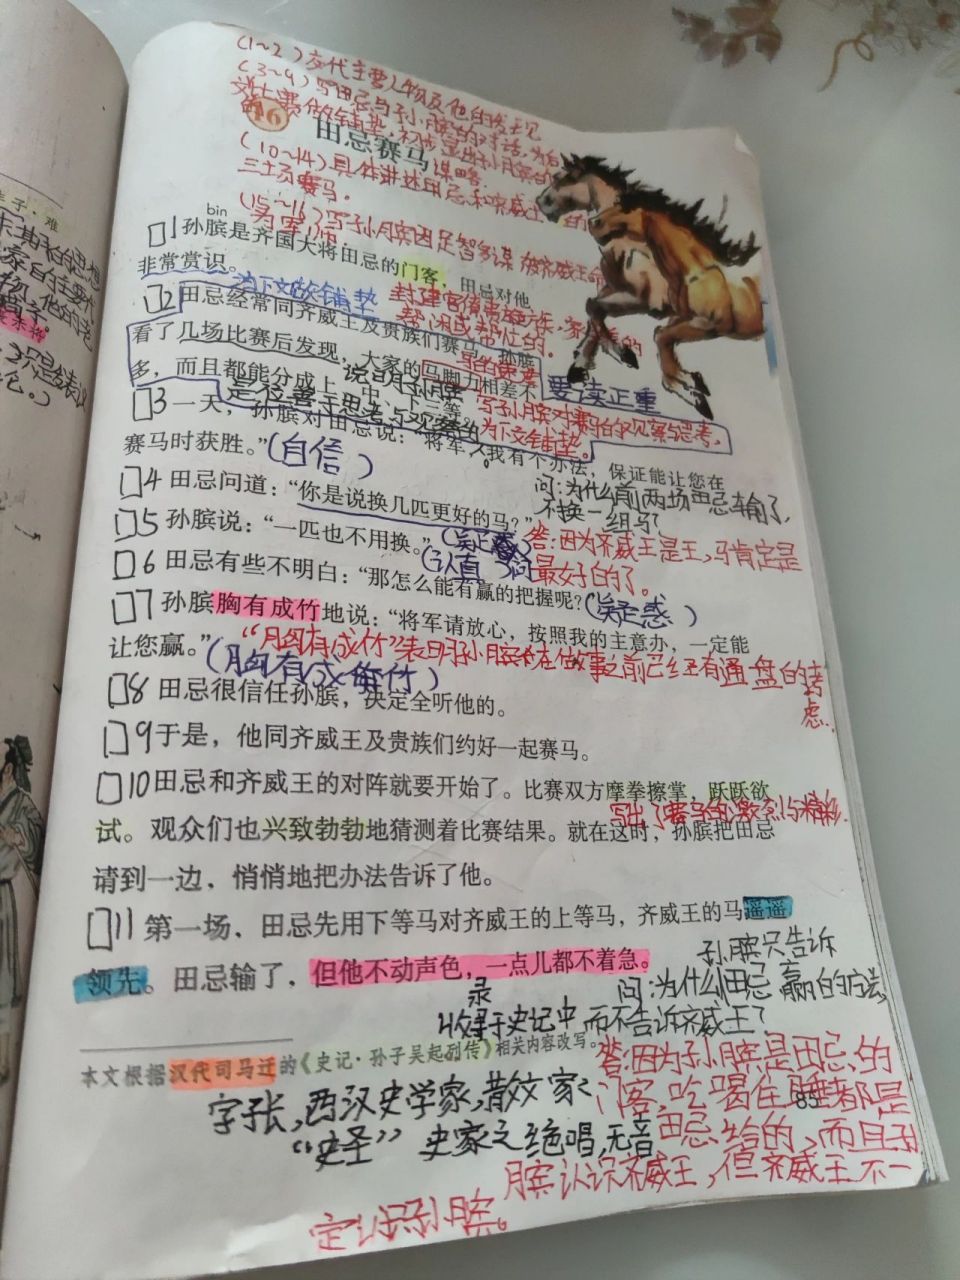 (1~2)交代主要人物及他的发现
(3~9)写田忌与孙膑的对话,为后
文比赛做铺垫,初步显出孙膑的
16
田忌赛马
谋略.
(10~14)具体讲述田忌和齐威王的
三场赛马.
(15~16)写孙膑因足智多谋被齐威王命
为军师.
bìn
1孙膑是齐国大将田忌的门客,田忌对他
非常赏识。
为下文做铺垫
封建官僚贵族
帮闲或帮忙的.
2田忌经常同齐威王及贵族们赛马。孙膑
看了几场比赛后发现,大家的马脚力相差不
马的速度
多,而且都能分成上、中、下三等。
要读正重
说明孙膑
是位善于思考与观察的
写孙膑对赛马的观察与思考,
为下文铺垫。
3一天,孙膑对田忌说:“将军,我有个办法,保证能让您在
赛马时获胜。”
(自信)
问:为什么前两场田忌输了,
不换一组马?
4田忌问道:“你是说换几匹更好的马?”
(疑惑)
5孙膑说:“一匹也不用换。”
(认真)
答:因为齐威王是王,马肯定是
最好的了。
6田忌有些不明白:“那怎么能有赢的把握呢?”
(疑惑)
7孙膑胸有成竹地说:“将军请放心,按照我的主意办,一定能
让您赢。”
“胸有成竹”表明孙膑在做事之前已经有通盘的考
虑.
(胸有成竹)
8田忌很信任孙膑,决定全听他的。
9于是,他同齐威王及贵族们约好一起赛马。
10田忌和齐威王的对阵就要开始了。比赛双方摩拳擦掌,跃跃欲
写出了赛马的激烈与精彩.
试。观众们也兴致勃勃地猜测着比赛结果。就在这时,孙膑把田忌
请到一边,悄悄地把办法告诉了他。
11第一场,田忌先用下等马对齐威王的上等马,齐威王的马遥遥
领先。田忌输了,但他不动声色,一点儿都不着急。
孙膑只告诉
问:为什么田忌赢的方法,
而不告诉齐威王?
收录于史记中
本文根据汉代司马迁的《史记·孙子吴起列传》相关内容改写。
字子长,西汉史学家,散文家
“史圣” 史家之绝唱,无音
85
答:因为孙膑是田忌的
门客,吃喝住睡都是
田忌给的,而且孙
膑认识齐威王,但齐威王不一
定认识孙膑。